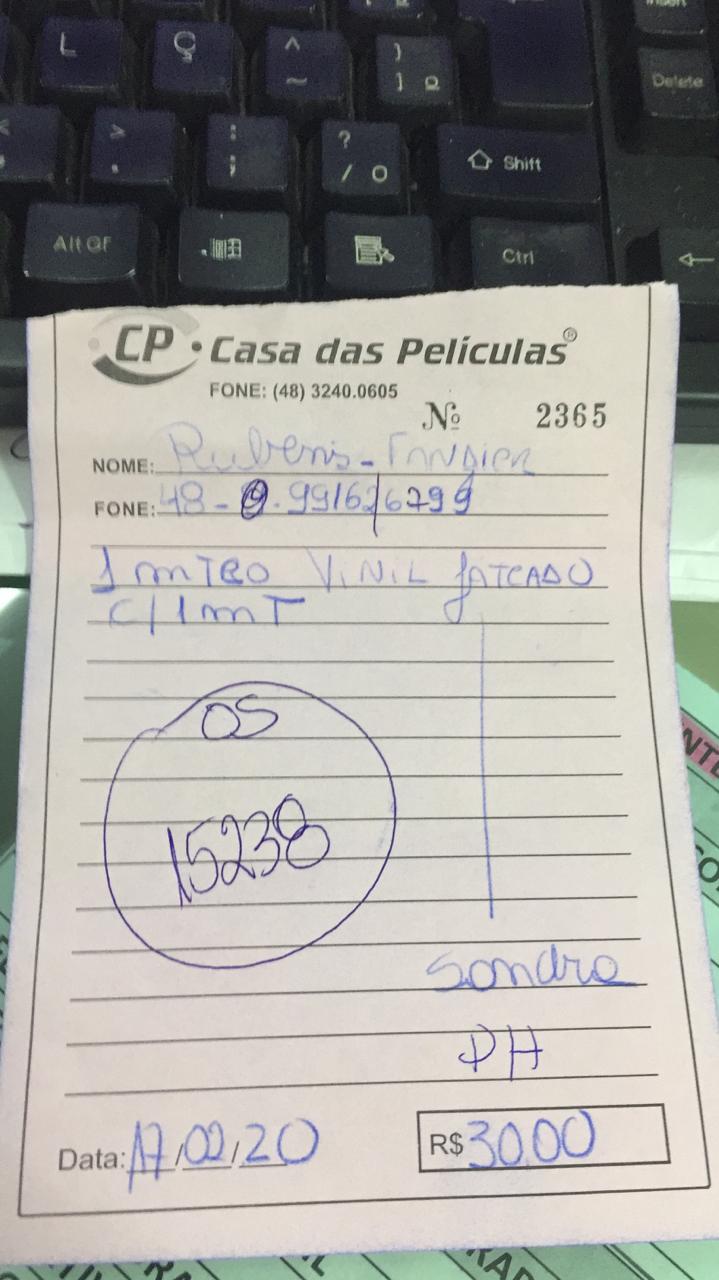 L Ç ^ ~ } ] º Insert Delete
< > . : ; ? / ° Shift
Alt Gr Ctrl ←
CP · Casa das Películas®
FONE: (48) 3240.0605
Nº 2365
NOME: Rubens -
FONE: 48 - 9.99162/6799
1 mTRO VINIL JATEADO
C/1mT
OS
15238
Sandra
PH
Data: 17/02/20 R$ 30,00